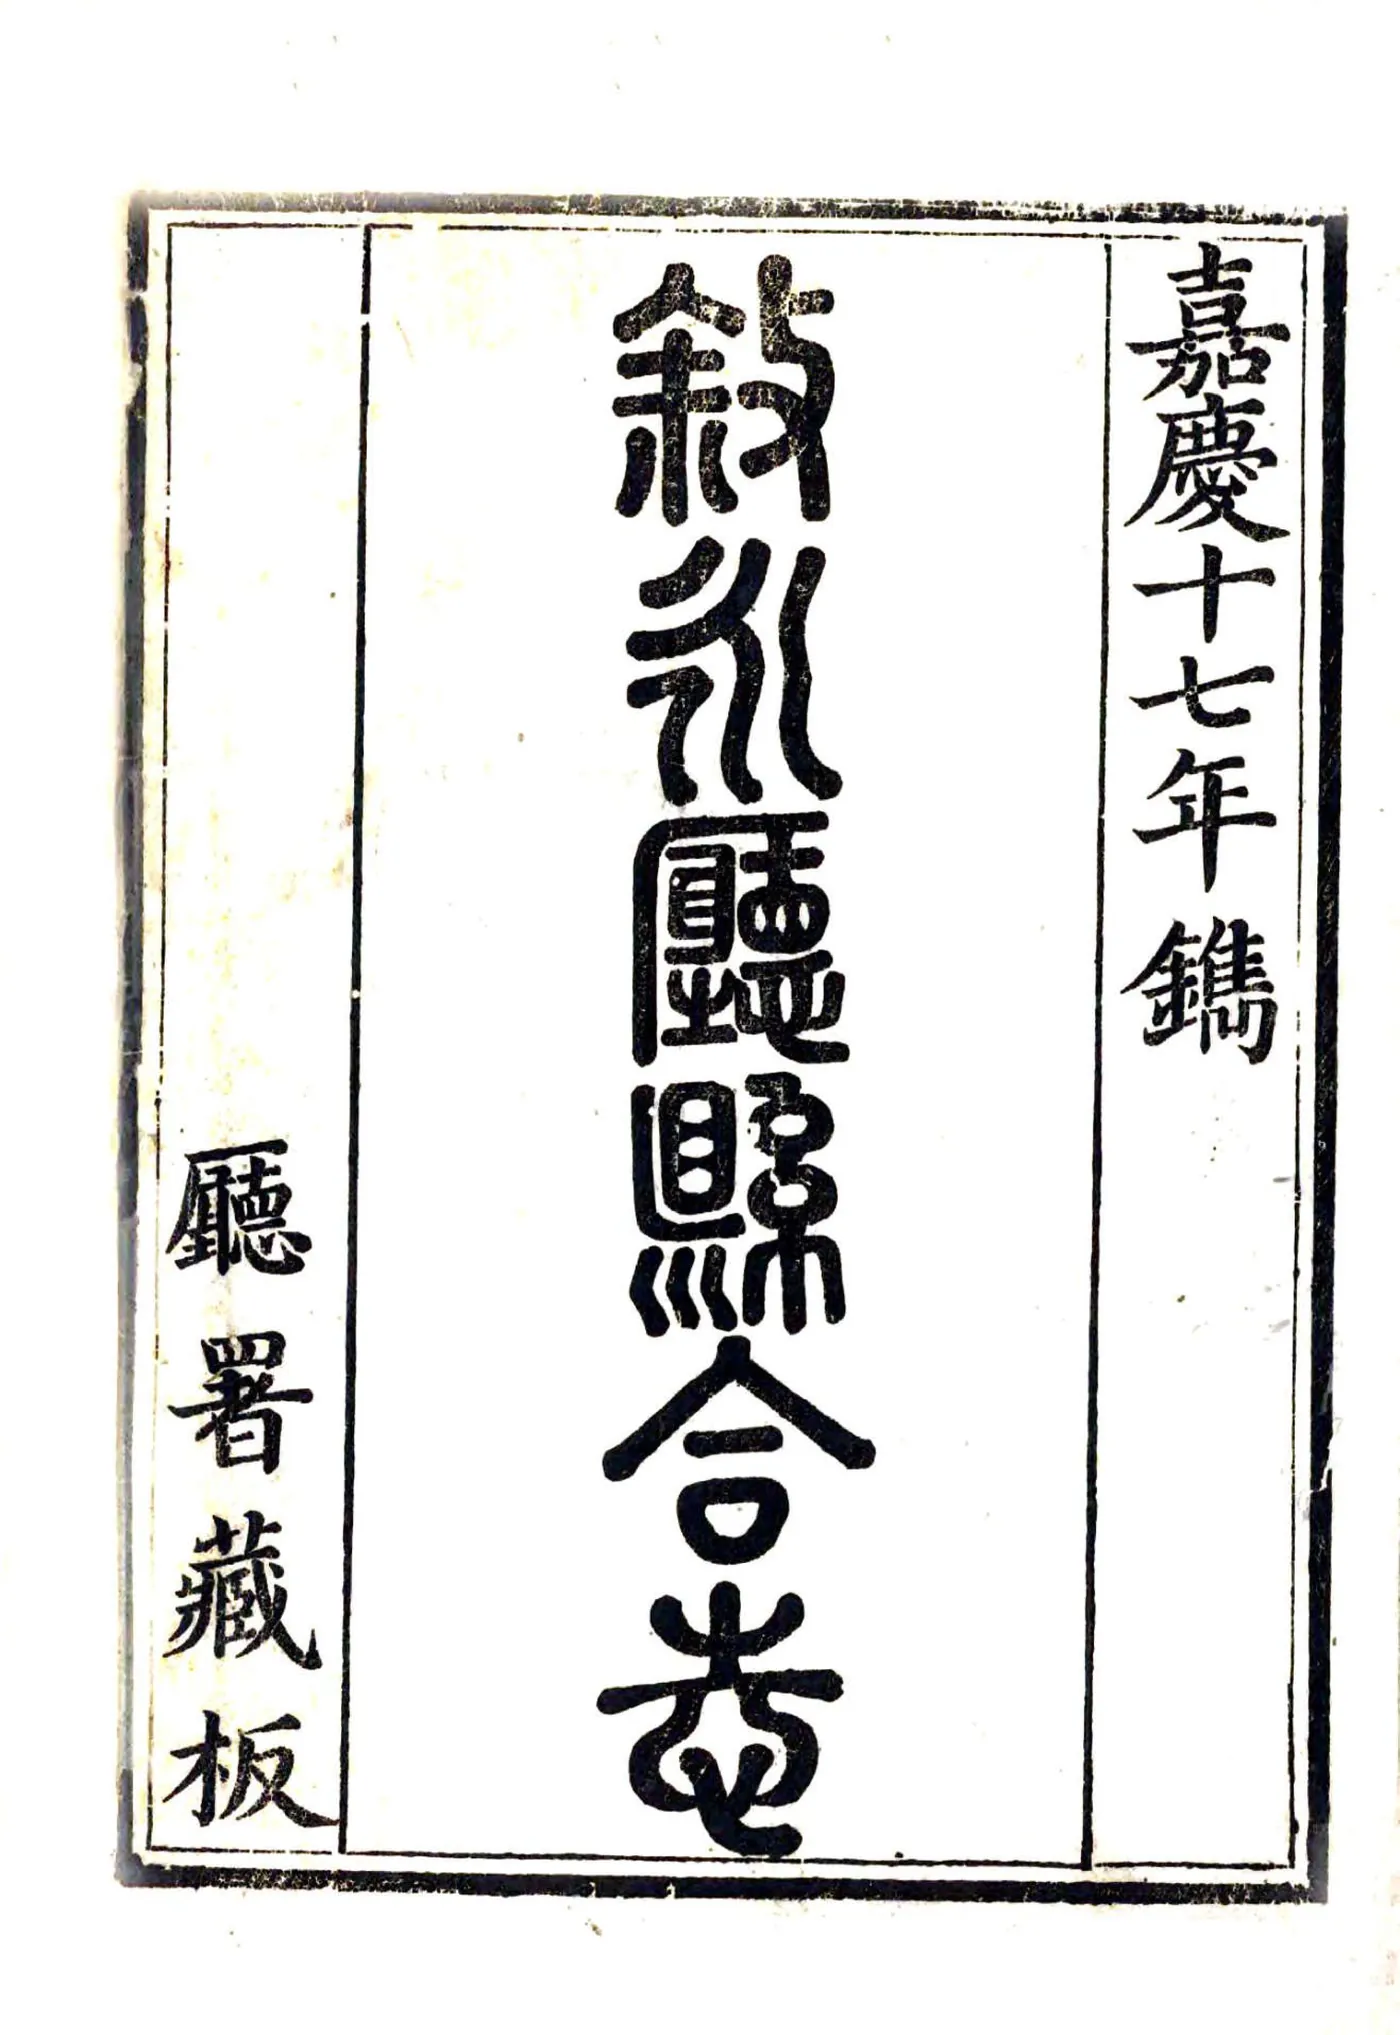 嘉慶十七年鐫
敘永廳縣合志
廳署藏板